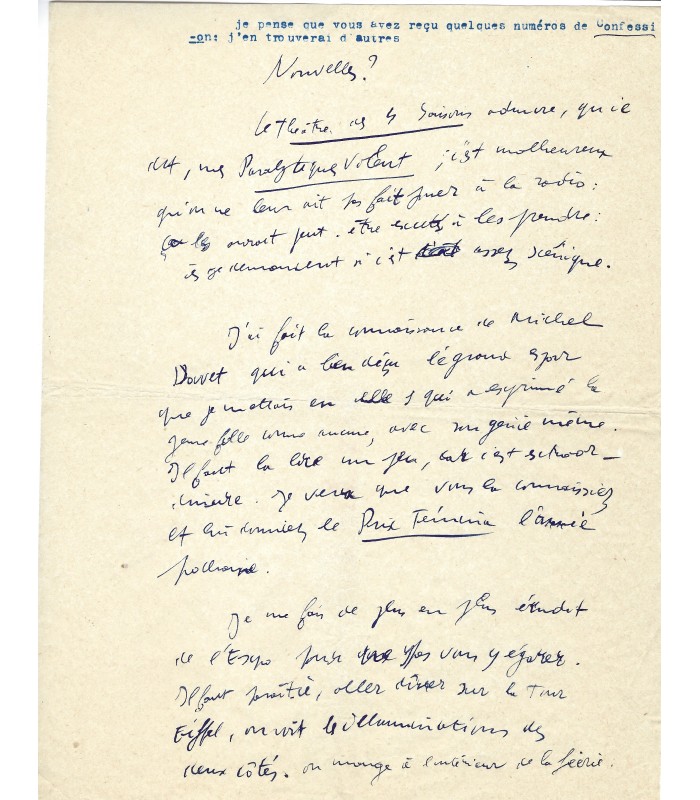 je pense que vous avez reçu quelques numéros de Confessi
-on: j'en trouverai d'autres
Nouvelles?
Le Théâtre des 4 Saisons admire, qu'ils
dit, mes Paralytiques Volent ; c'est malheureux
qu'on ne leur ait pas fait jouer à la radio :
ça les aurait peut-être excités à les prendre :
ils se demandent si c'est assez scénique.
J'ai fait la connaissance de Michel
Davet qui a bien déçu le grand espoir
que je mettais en elle & qui a exprimé la
jeune fille comme aucune, avec son génie même.
Il faut la lire un peu, car c'est extraor-
dinaire. Je veux que vous la connaissiez
et lui donniez le Prix Fémina l'année
prochaine.
Je me fais de plus en plus érudit
de l'Expo pour pas vous y égarer.
Il faut paraît-il, aller dîner sur la Tour
Eiffel, on voit les illuminations des
deux côtés. on mange à l'intérieur de la féérie.